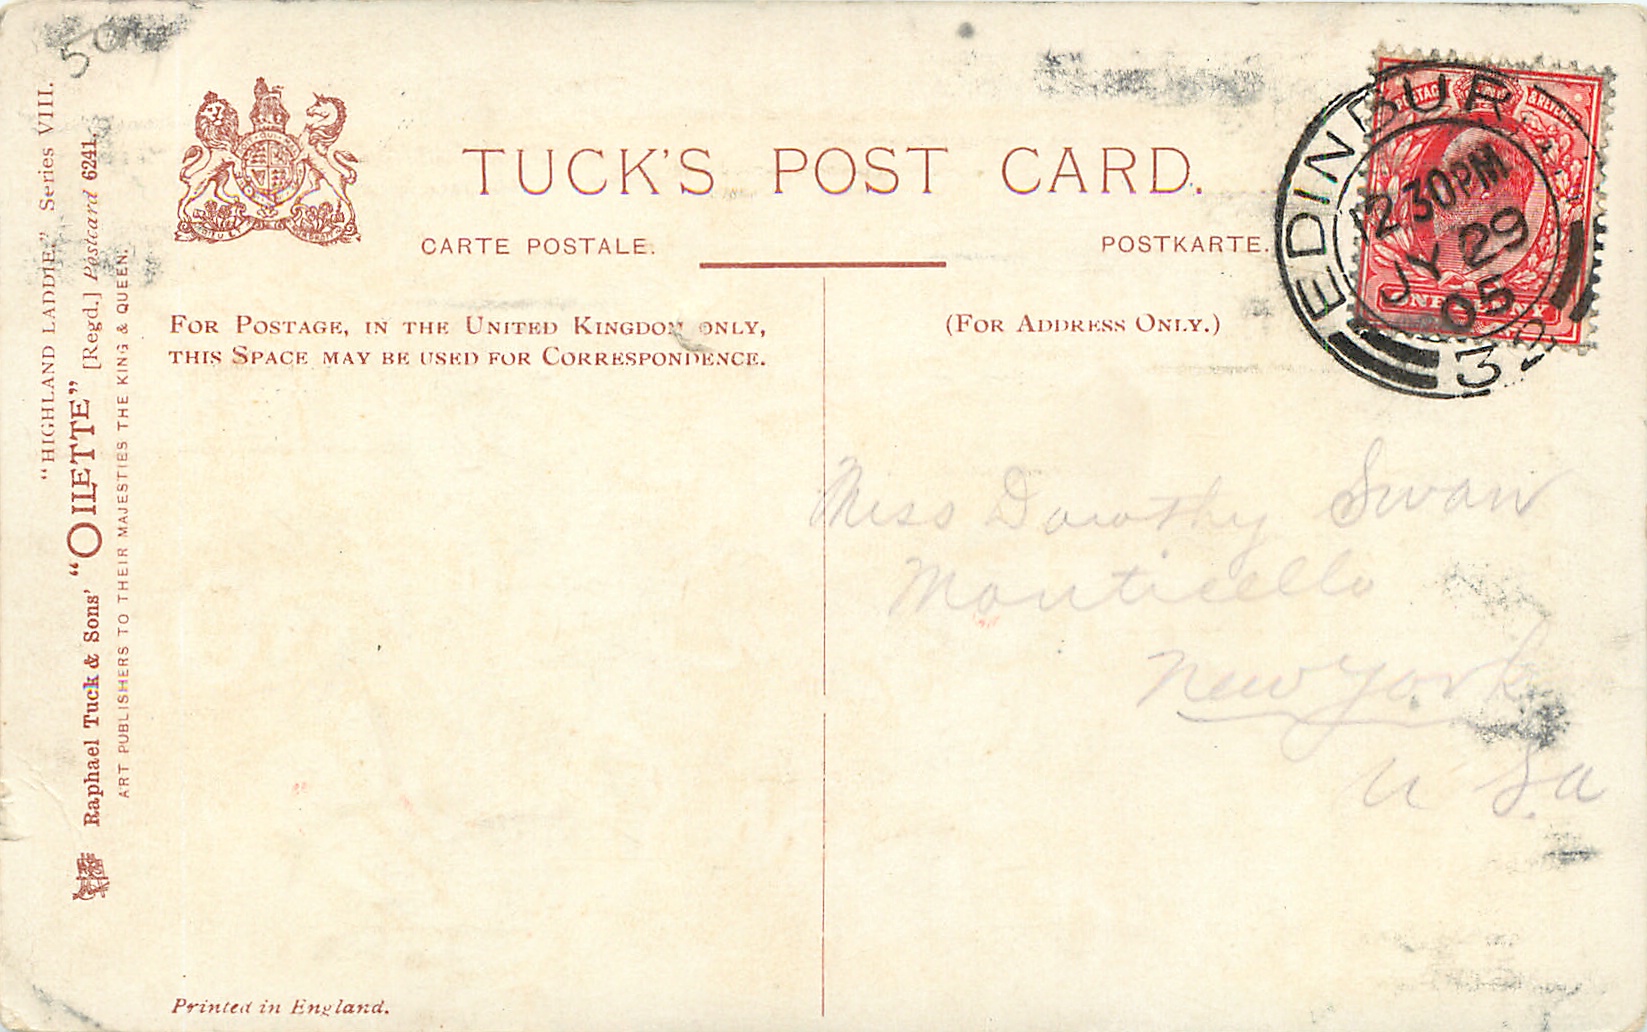 50
TUCK'S POST CARD.
CARTE POSTALE.
POSTKARTE.
FOR POSTAGE, IN THE UNITED KINGDOM ONLY,
THIS SPACE MAY BE USED FOR CORRESPONDENCE.
(FOR ADDRESS ONLY.)
EDINBUR
12 30PM
JY 29
05
32
POSTAGE & REVENUE
ONE PENNY
Miss Dorothy Swan
Monticello
New York
U Sa
"HIGHLAND LADDIE." Series VIII.
Raphael Tuck & Sons' "OILETTE" [Regd.] Postcard 6241.
ART PUBLISHERS TO THEIR MAJESTIES THE KING & QUEEN.
Printed in England.